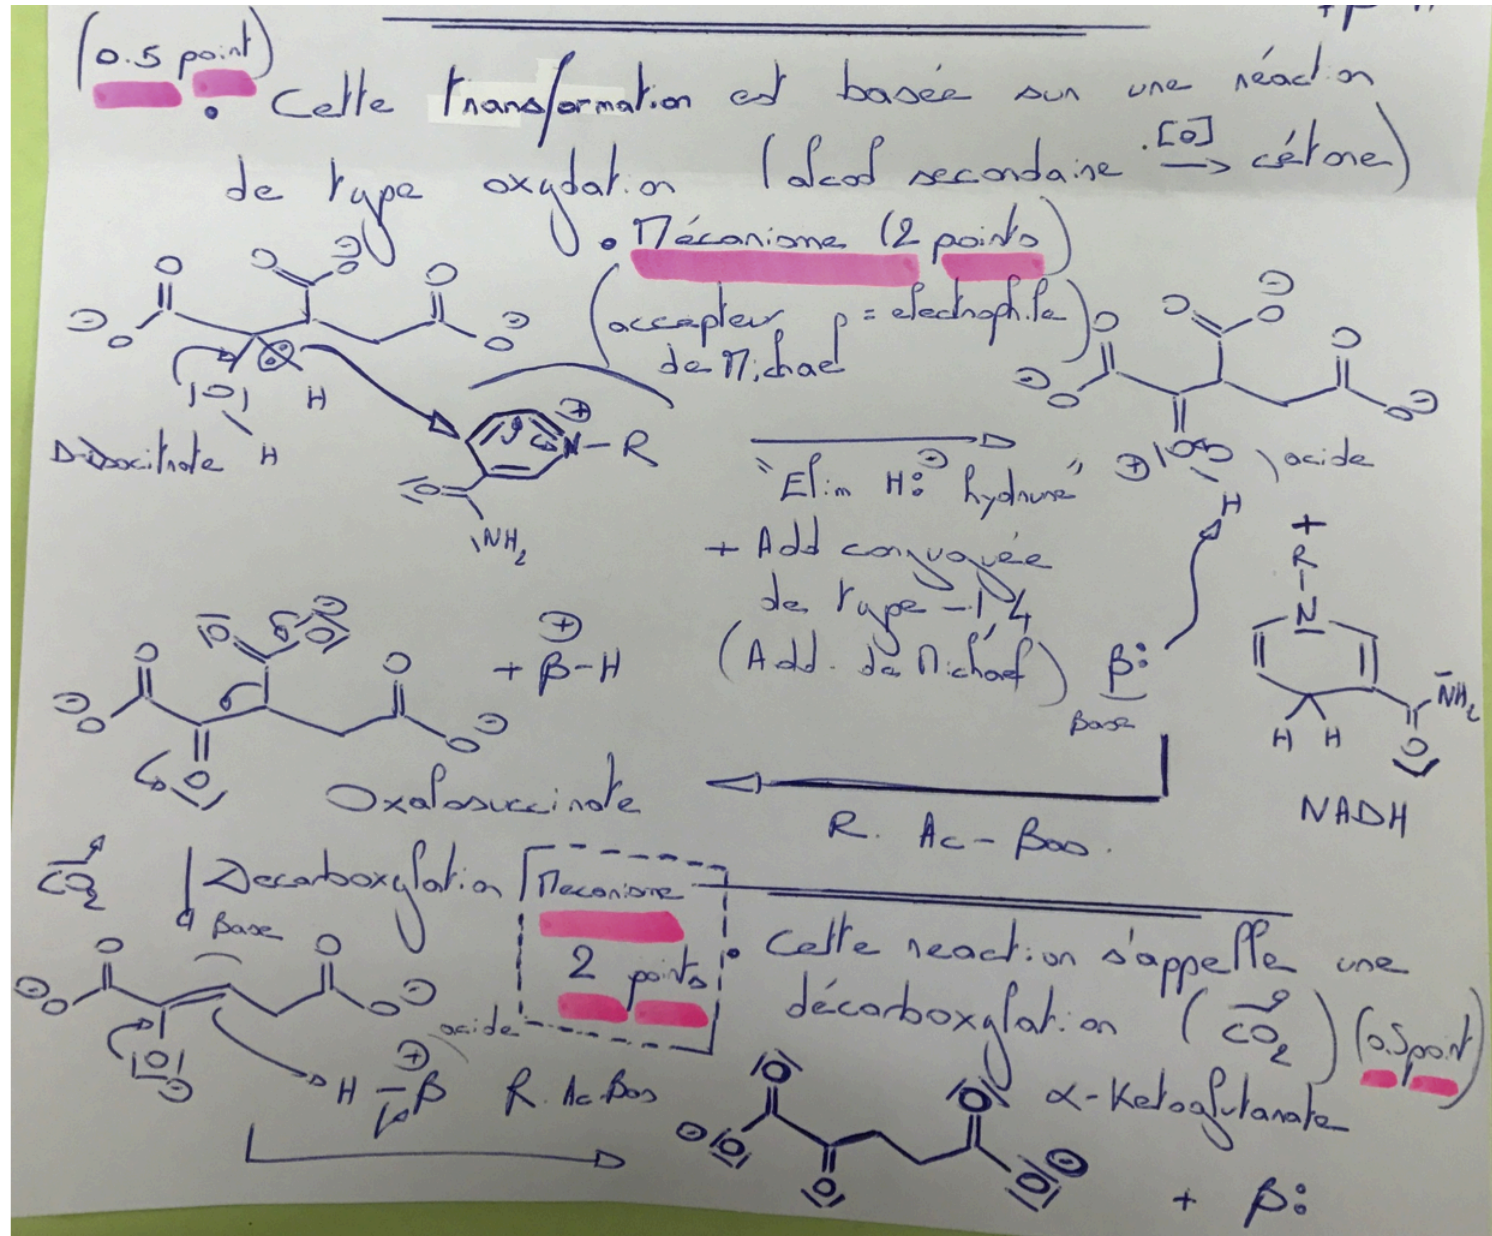 (0.5 point)
• Cette transformation est basée sur une réaction
de type oxydation (alcool secondaire [O] → cétone)
• Mécanisme (2 points)
(accepteur, p = electrophile)
de Michael
D-Isocitrate
H
H
N-R
NH2
"Elim H:⊖ hydrure"
+ Add conjuguée
de type -1,4
(Add. de Michael)
acide
H
+
R
N
NH2
H H
O
NADH
β:
Base
+ β-H
Oxalosuccinate
R. Ac-Bas.
CO2
Decarboxylation
Mecanisme
2 points
• Cette reaction s'appelle une
décarboxylation (CO2) (0.5 point)
Base
acide
H-β
R. Ac-Bas
α-Ketoglutarate
+ β: